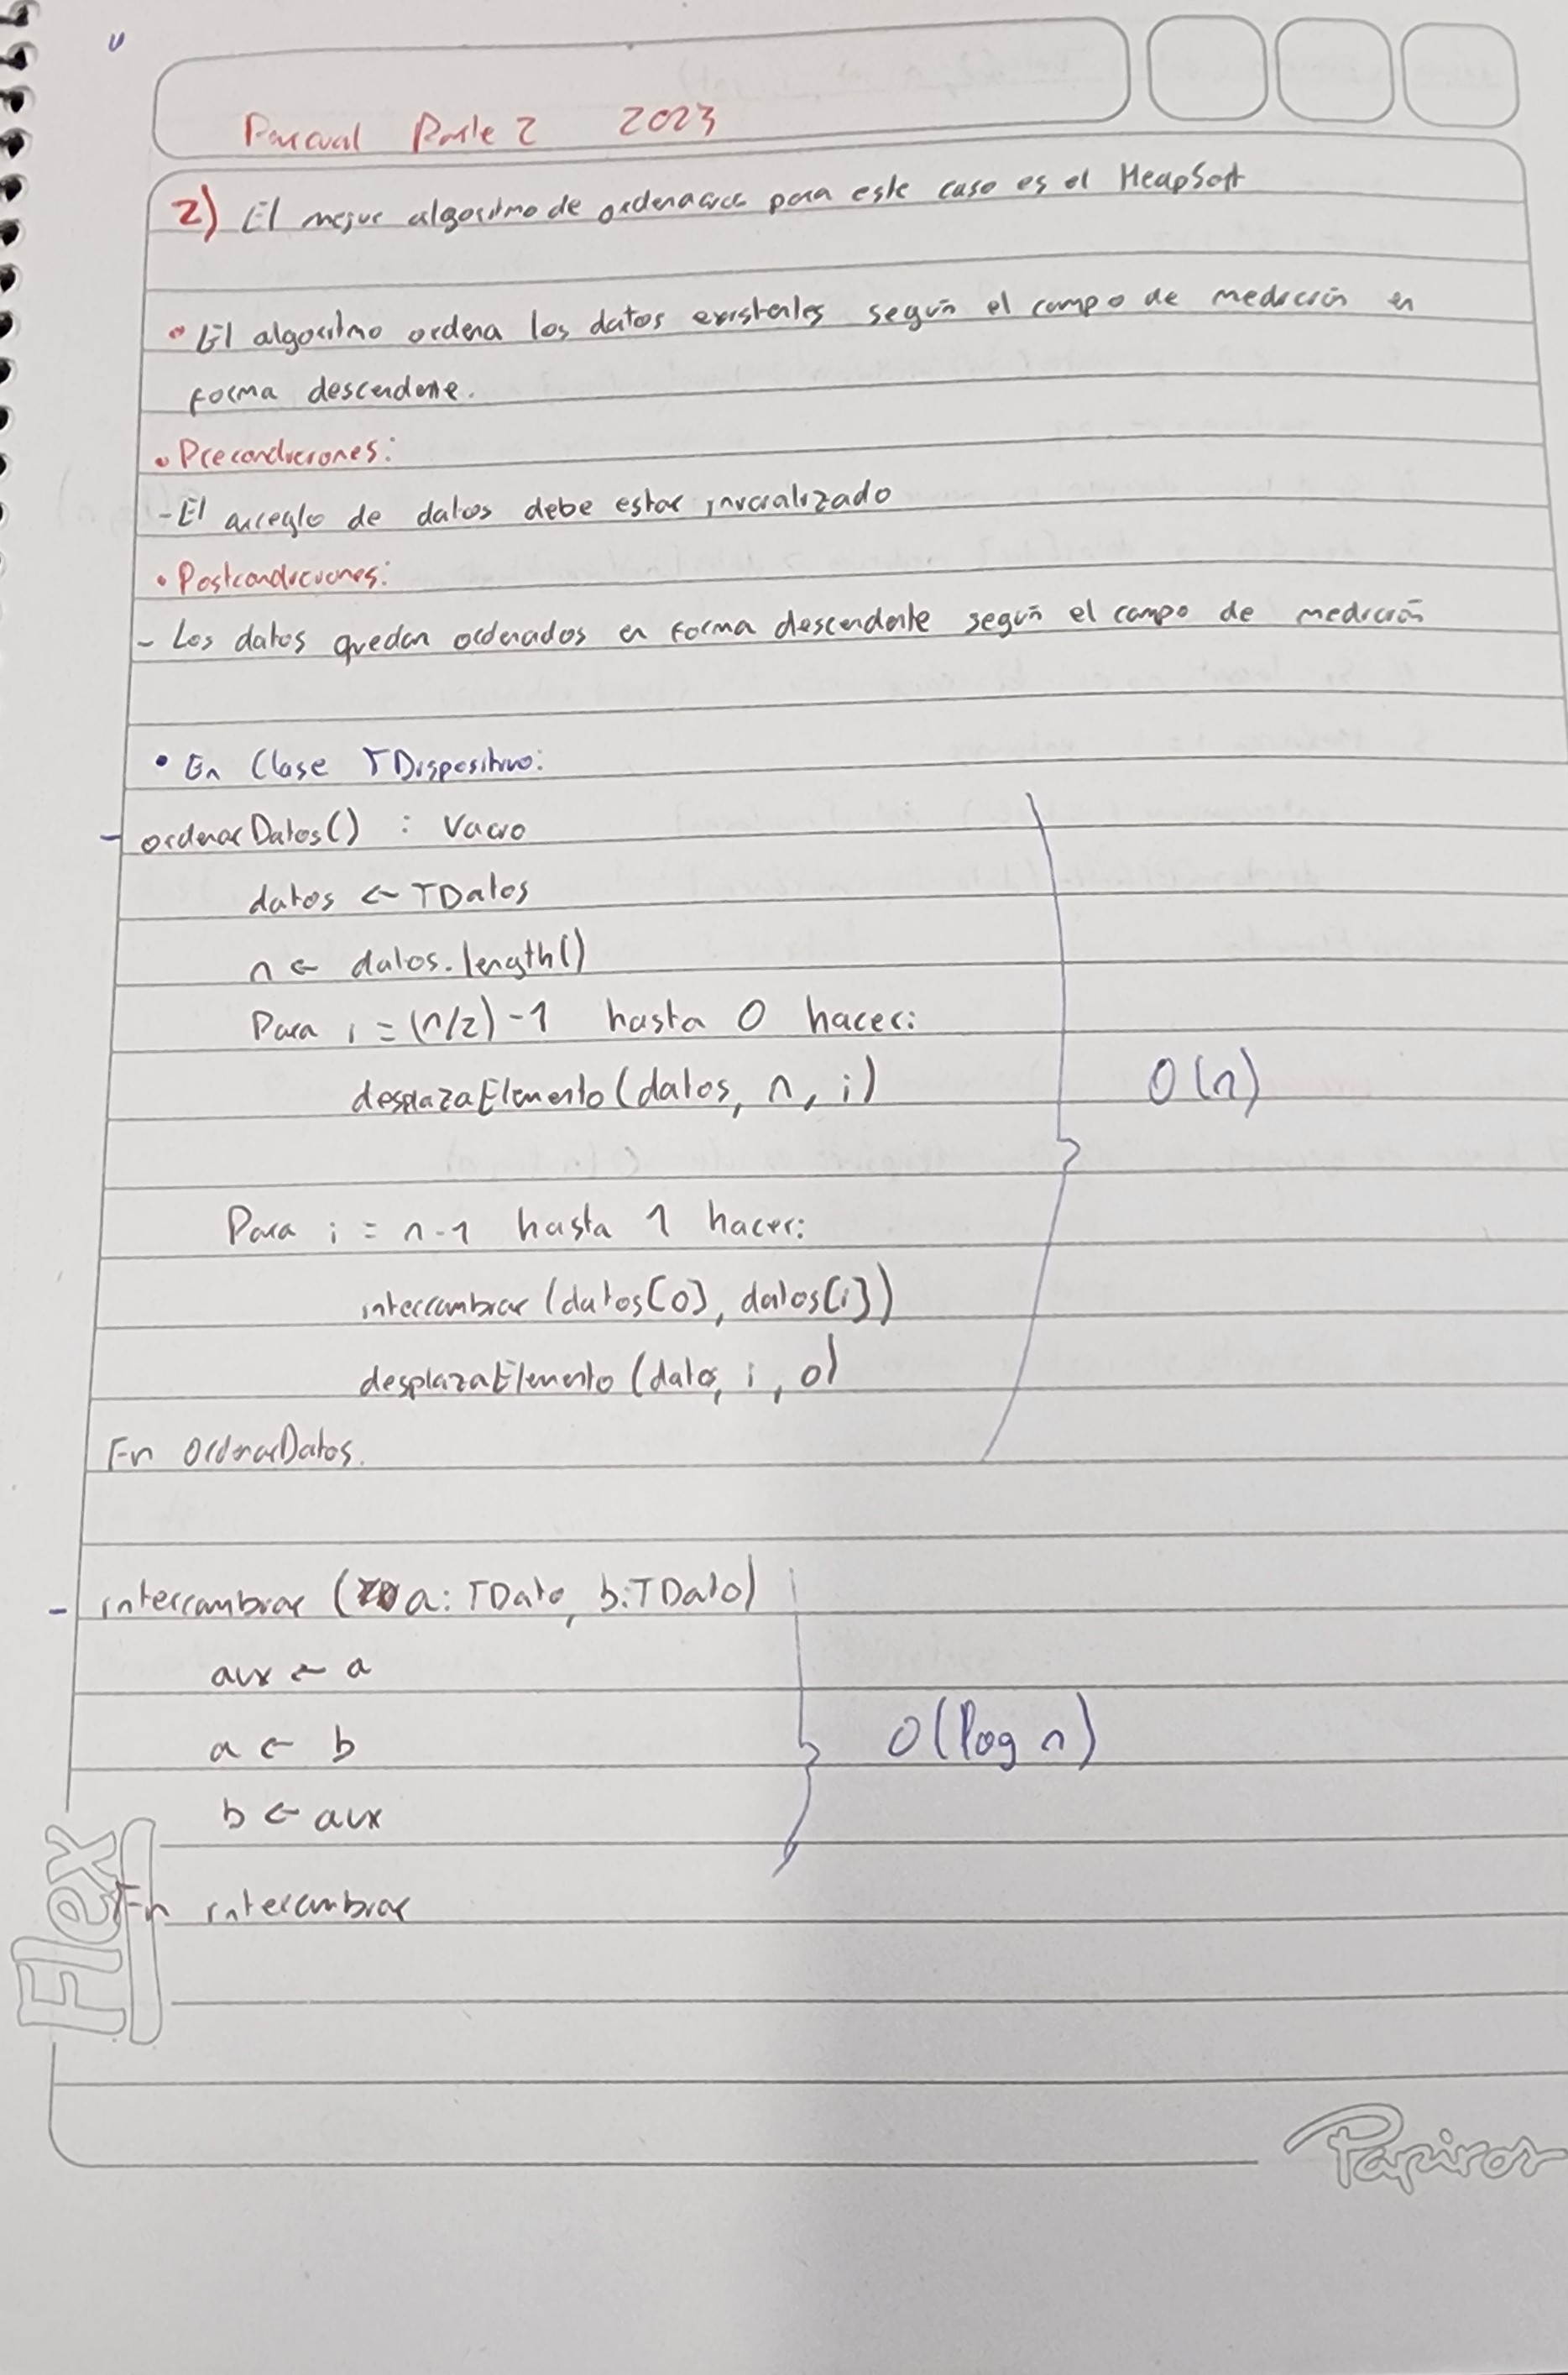 Parcial Parte 2 2023
2) El mejor algoritmo de ordenación para este caso es el HeapSort
• El algoritmo ordena los datos existentes según el campo de medición en
forma descendente.
• Precondiciones:
- El arreglo de datos debe estar inicializado
• Postcondiciones:
- Los datos quedan ordenados en forma descendente según el campo de medición
• En Clase TDispositivo:
- ordenarDatos() : Vacio
datos ← TDatos
n ← datos.length()
Para i = (n/2) - 1 hasta 0 hacer:
desplazaElemento(datos, n, i)
O(n)
Para i = n-1 hasta 1 hacer:
intercambiar (datos[0], datos[i])
desplazaElemento (datos, i, 0)
Fin OrdenarDatos.
- intercambiar (a: TDato, b: TDato)
aux ← a
a ← b
O(log n)
b ← aux
Fin intercambiar
Flex
Papiros